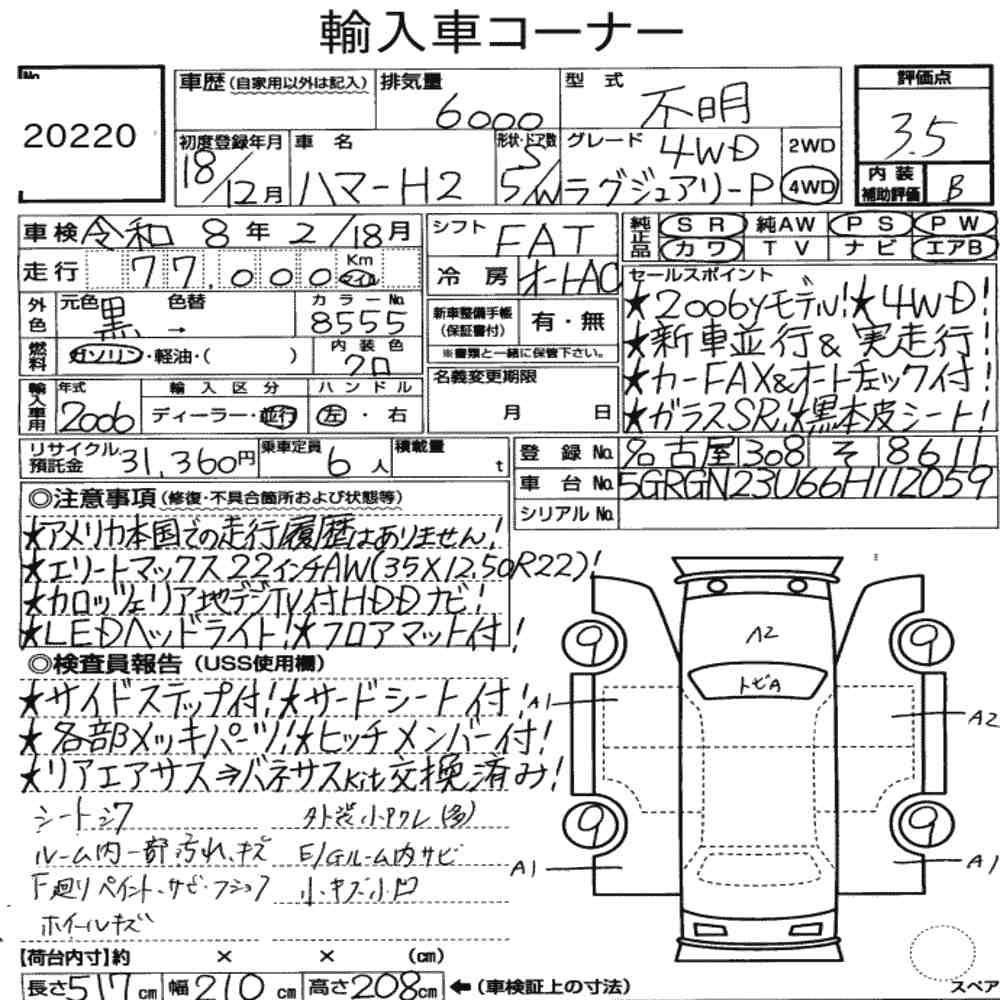 輸入車コーナー
No.
20220
車歴 (自家用以外は記入)
排気量
6000
型式
不明
評価点
3.5
初度登録年月
18/12月
車名
ハマーH2
形状・ドア数
5/W
グレード
4WD
ラグジュアリーP
2WD
4WD
内装補助評価
B
車検 令和 8年 2/18月
走行 77,000 Km マイル
外色 元色 黒 色替 → カラーNo. 8555
燃料 ガソリン・軽油・( ) 内装色
輸入車用 年式 2006 輸入区分 ディーラー・並行 ハンドル 左・右
シフト FAT
冷房 オートAC
新車整備手帳(保証書付) 有・無
※書類と一緒に保管下さい。
名義変更期限
月 日
純正品 SR 純AW PS PW
カワ TV ナビ エアB
セールスポイント
★2006yモデル!★4WD!
★新車並行&実走行!
★カーFAX&オートチェック付!
★ガラスSR,★黒本皮シート!
リサイクル預託金 31,360円 乗車定員 6人 積載量 t
登録No. 名古屋 308 そ 8611
車台No. 5GRGN23U66H112059
シリアルNo.
◎注意事項 (修復・不具合箇所および状態等)
★アメリカ本国での走行履歴はありません!
★エリートマックス22インチAW(35X12.50R22)!
★カロッツェリア地デジTV付HDDナビ!
★LEDヘッドライト!★フロアマット付!
◎検査員報告 (USS使用欄)
★サイドステップ付!★サードシート付!
★各部メッキパーツ!★ヒッチメンバー付!
★リアエアサス⇒バネサスkit交換済み!
シートシワ 外装小アクレ(多)
ルーム内一部汚れ、キズ E/Gルーム内サビ
下廻りペイント、サビ・フショク 小キズ小凹
ホイールキズ
A2
トビA
9
9
9
9
A1
A2
A1
A1
スペア
【荷台内寸】約 × × (cm)
長さ517cm 幅210cm 高さ208cm ←(車検証上の寸法)